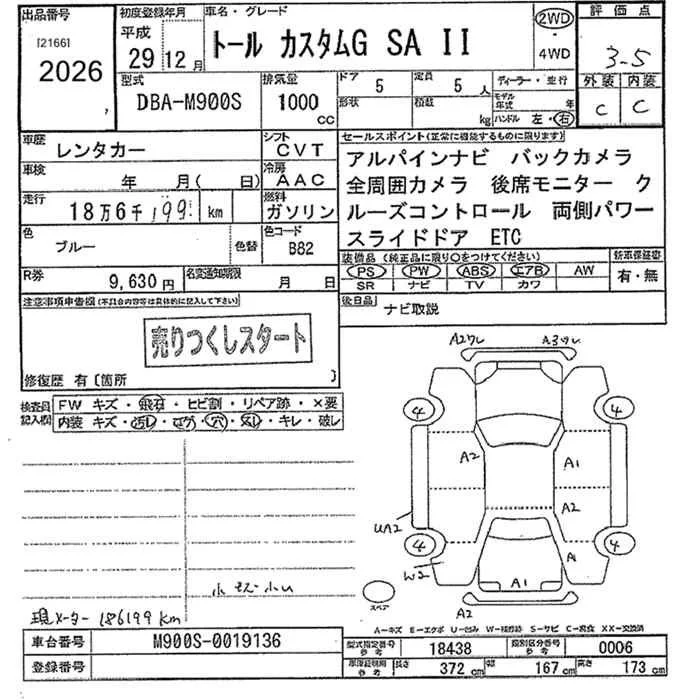 出品番号
[2166]
2026
初度登録年月
平成
29年12月
車名・グレード
トール カスタムG SA II
2WD
4WD
評価点
3-5
外装 内装
C C
型式
DBA-M900S
排気量
1000
cc
ドア 5
定員 5人
形状
積載 kg
ディーラー・並行
モデル年式 年
ハンドル 左・右
車歴
レンタカー
シフト
CVT
車検
年 月( 日)
冷房
AAC
走行
18万6千199 km
燃料
ガソリン
色
ブルー
色替
色コード
B82
R券
9,630円
名変通知期限
月 日
セールスポイント(正常に機能するものに限ります)
アルパインナビ バックカメラ
全周囲カメラ 後席モニター ク
ルーズコントロール 両側パワー
スライドドア ETC
装備品(純正品に限り○をつけてください)
PS PW ABS エアB AW
SR ナビ TV カワ
新車保証書
有・無
後日品
ナビ取説
注意事項申告欄(不具合内容等は具体的に記入して下さい)
売りつくしスタート
修復歴 有〔箇所 〕
検査員記入欄
FW キズ・飛石・ヒビ割・リペア跡・×要
内装 キズ・汚レ・コゲ・穴・スレ・キレ・破レ
A2ワレ A3ワレ
4 4
A2 A1
A2
UA2
4 4
W2 A
A1
A2
スペア
現メーター 186199km
A—キズ E—エクボ U—凹み W—補修跡 S—サビ C—腐食 XX—交換済
車台番号
M900S-0019136
登録番号
型式指定番号 参考
18438
類別区分番号 参考
0006
車庫証明用 参考
長さ 372 cm
幅 167 cm
高さ 173 cm